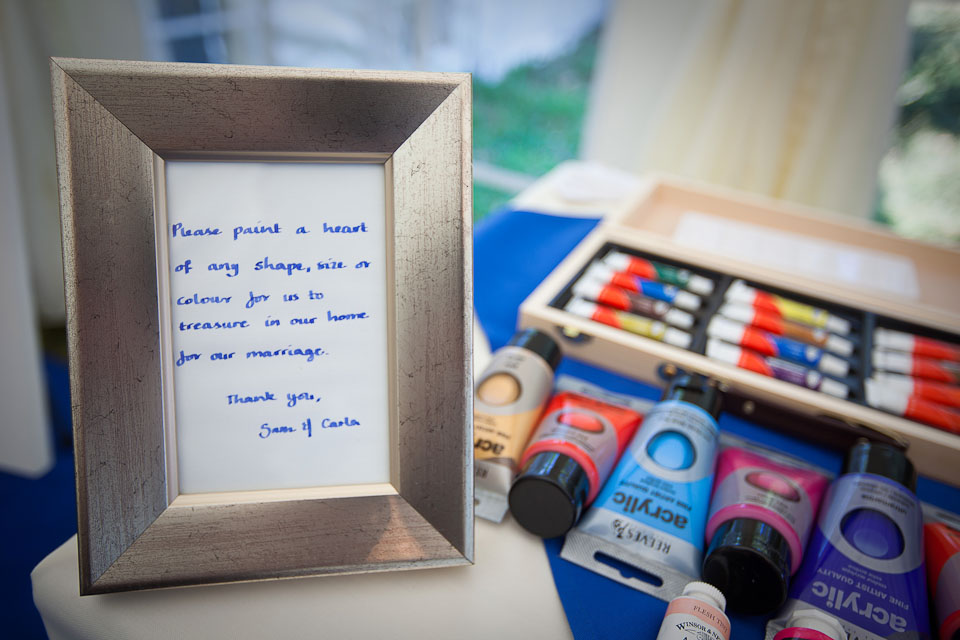 Please paint a heart
of any shape, size or
colour for us to
treasure in our home
for our marriage.
Thank you,
Sam & Carla
acrylic
acrylic
acrylic
FINE ARTIST QUALITY
REEVES
FINE ARTIST QUALITY
acrylic
FLESH TINT
WINSOR & NEWTON